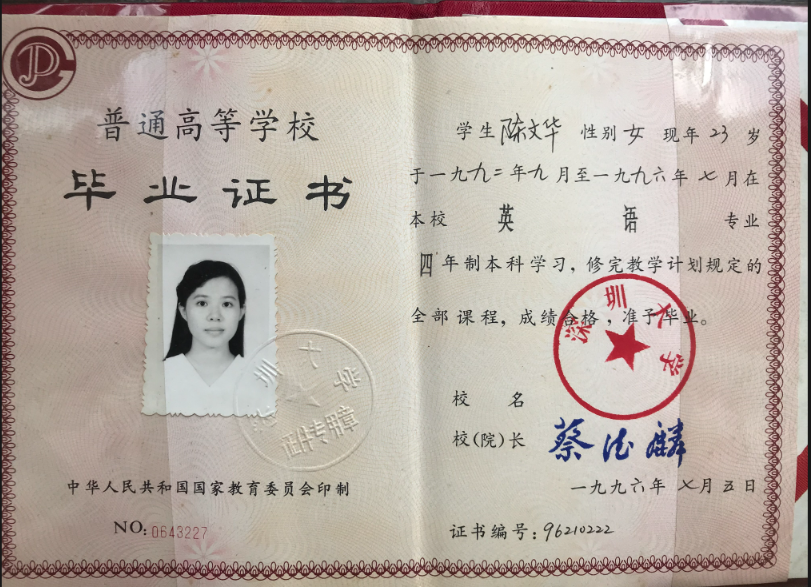 普通高等学校
毕业证书
深圳大学
证件专用章
中华人民共和国国家教育委员会印制
NO: 0643227
学生陈文华 性别女 现年23岁
于一九九二年九月至一九九六年七月在
本校 英语 专业
四年制本科学习，修完教学计划规定的
全部课程，成绩合格，准予毕业。
深圳大学
校名
校(院)长 蔡德麟
一九九六年七月五日
证书编号：96210222